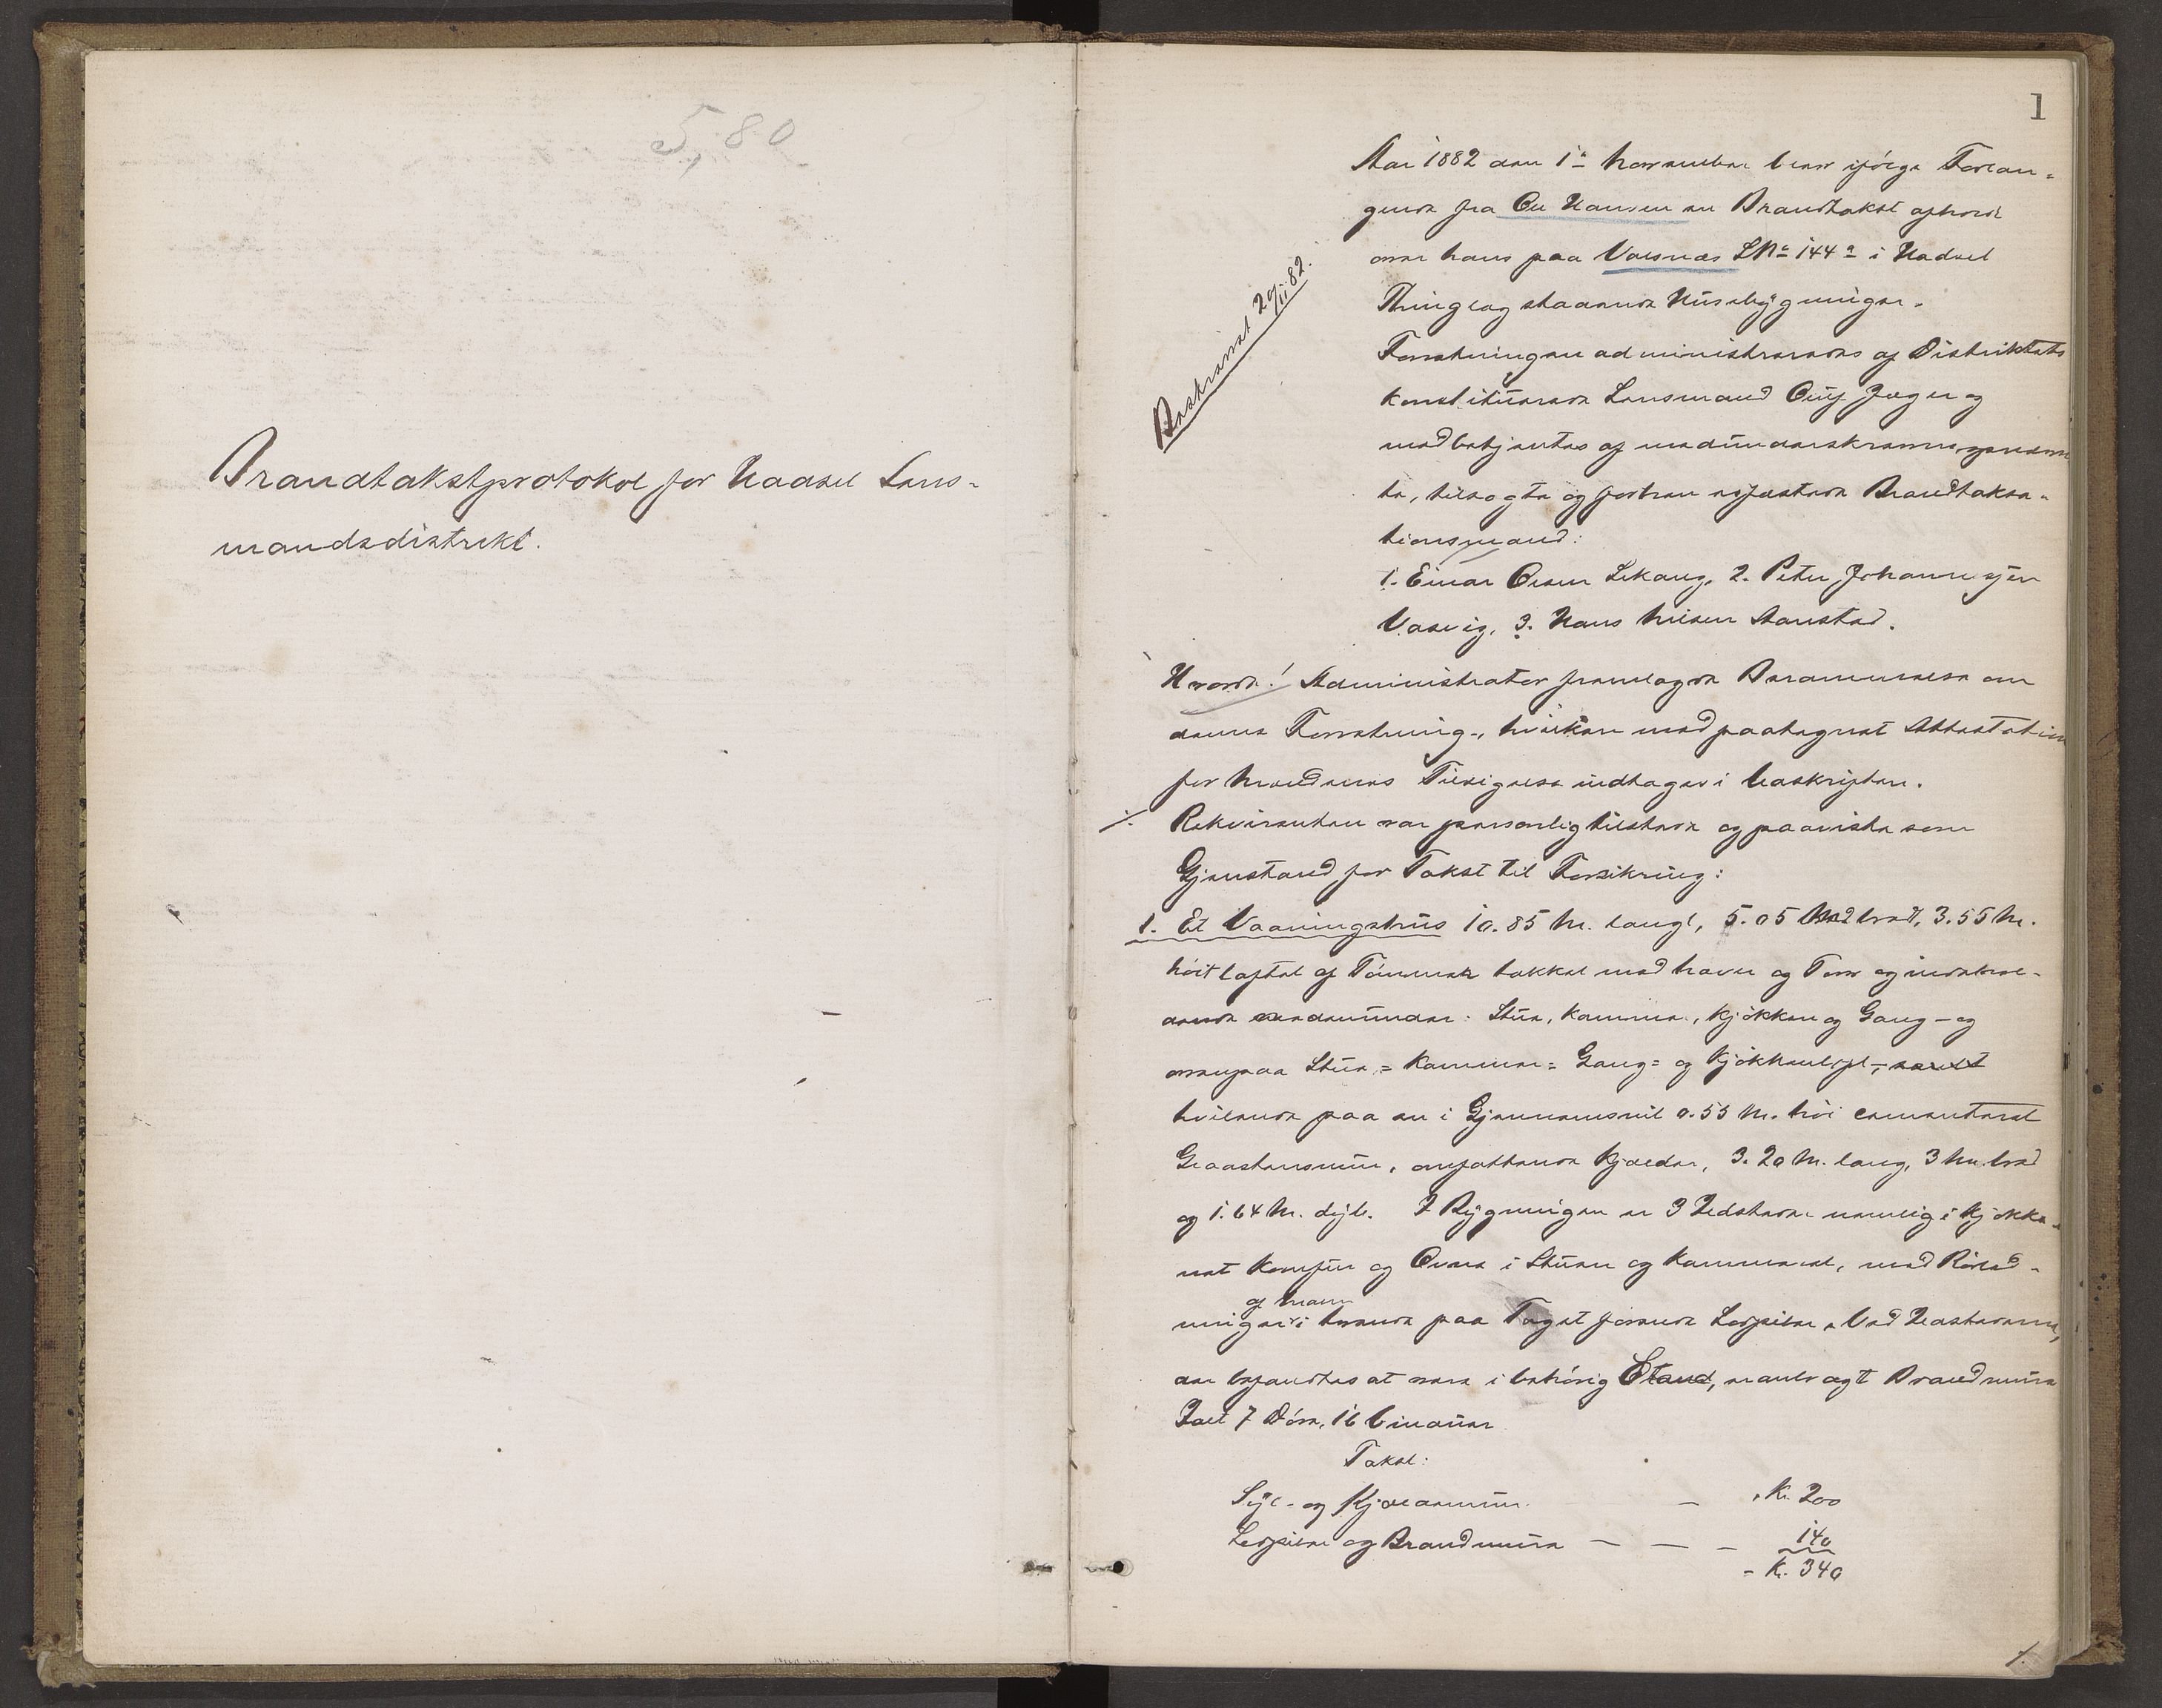 5,80
Brandtakstprotokol for Hadsel Lens-
mandsdistrikt.
1
Aar 1882 den 1ste November blev ifølge Forlan-
gende fra Ole Hansen en Brandtakst afholdt
over hans paa Valsnæs LNo 144a i Hadsel
Thinglag staaende Husebygninger.
Beskrevet 29/11 82.
Forretningen administreredes af Distriktets
konstituerede Lensmand Oluf Juger og
medbetjentes af medunderskrevne
te, tilsagte og forhen edfæstede Brandtaksa-
tionsmænd:
1. Einar Olsen Lekang, 2. Peter Johannesen
Valvig, 3. Hans Nilsen Aanstad.
Hvorda! Administrator fremlagde Berammelse om
denne Forretning, hvilken med paategnet Attestation
for Mændenes Tilsigelse indtages i Beskriften.
⁒ Rekvirenten var personlig tilstede og paaviste som
Gjenstand for Takst til Forsikring:
1. Et Vaaningshus 10.85 M. langt, 5.05 M bredt, 3.55 M.
høit loftet af Tømmer tækket med Næver og Torv og indehol-
dende nedenunder: Stue, Kammer, Kjøkken og Gang - og
ovenpaa Stue- Kammer- Gang- og Kjøkkenloft -,
hvilende paa en i Gjennemsnit 0.55 M. høi cementeret
Graastensmur, omfattende Kjælder, 3.20 M. lang, 3 M. bred
og 1.64 M. dyb. I Bygningen er 3 Ildsteder nemlig i Kjøkke-
net Komfur og Ovne i Stuen og Kammeret, med Rørled-
af
ninger i over paa Tagetførende Ledpiber. Ved Ildstederne,
der befandtes at være i behørig Stand, er anbragt Brandmure
Ialt 7 Døre, 16 Vinduer
Takst:
Syl- og Kjældermur — Kr. 200
Ledpiber og Brandmure — — — 140
- Kr. 340
1.